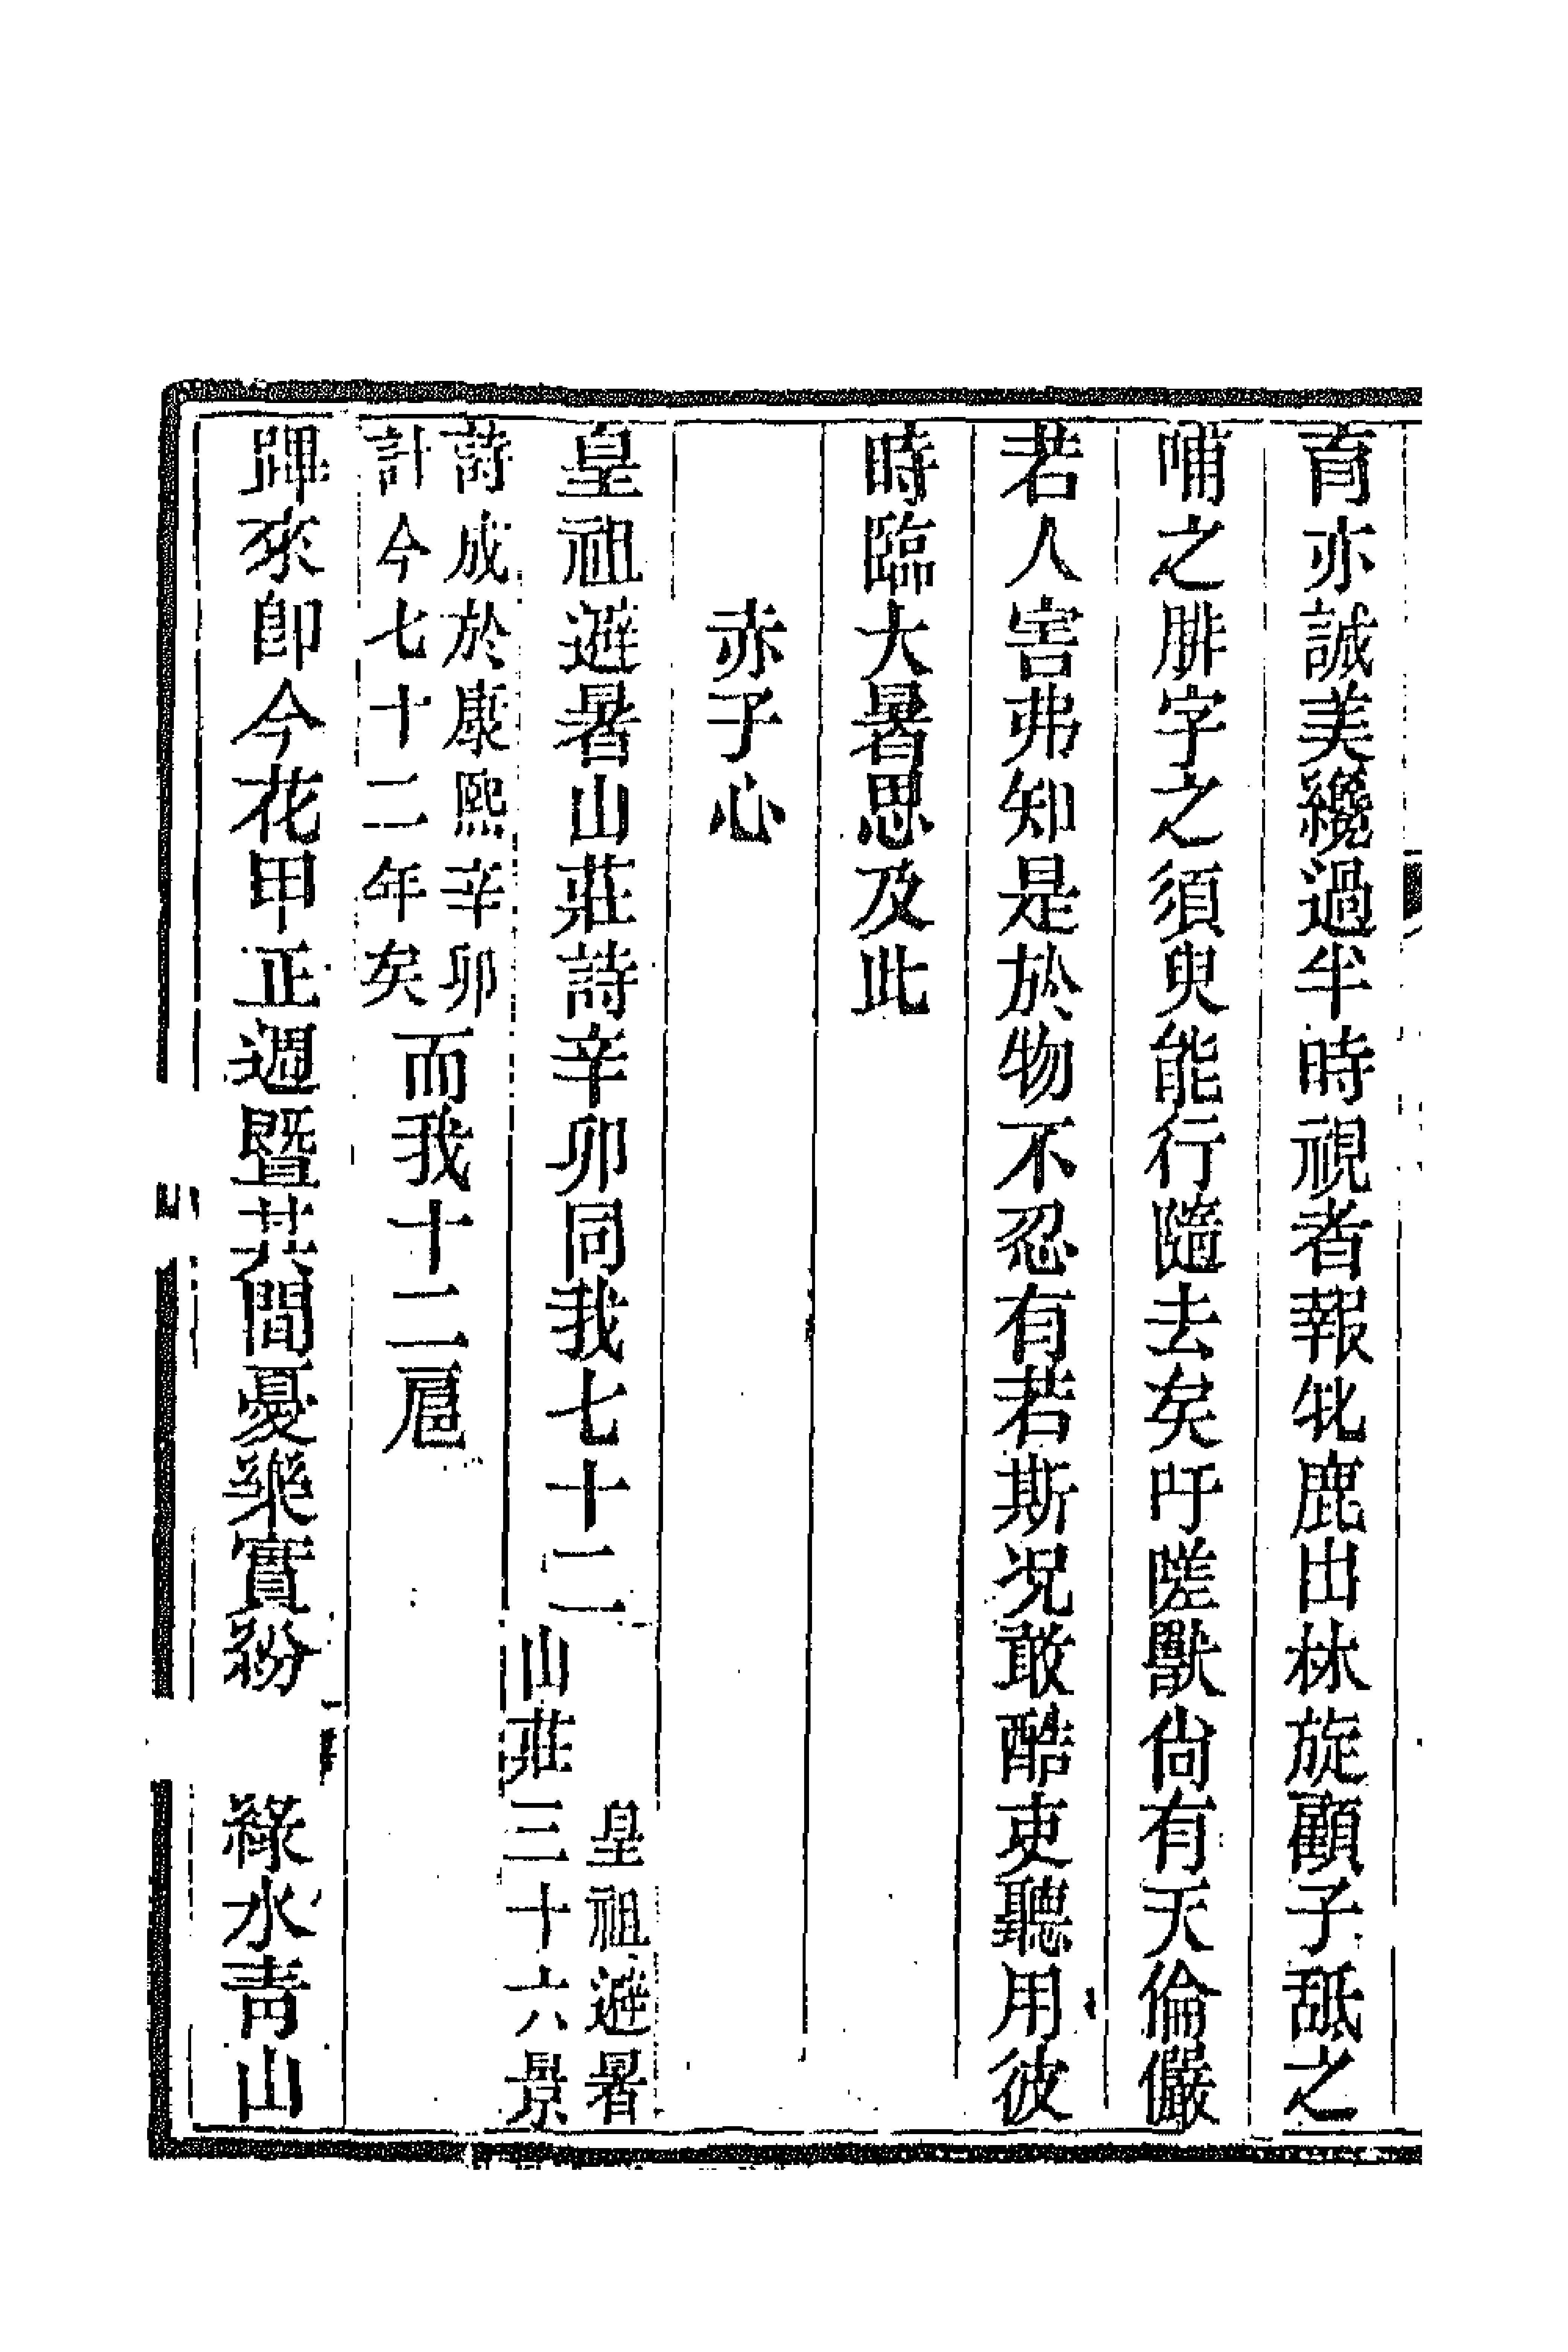 育亦誠美纔過半時視者報牝鹿出林旋顧子舐之
哺之腓字之須臾能行隨去矣吁嗟獸尙有天倫儼
若人害弗知是於物不忍有若斯况敢酷吏聽用彼
時臨大暑思及此
赤子心
皇祖避暑山莊詩辛卯同我七十二
皇祖避暑
山莊三十六景
詩成於康熙辛卯
計今七十二年矣
而我十二扈
蹕來卽今花甲正週暨其間憂樂實紛
綠水靑山